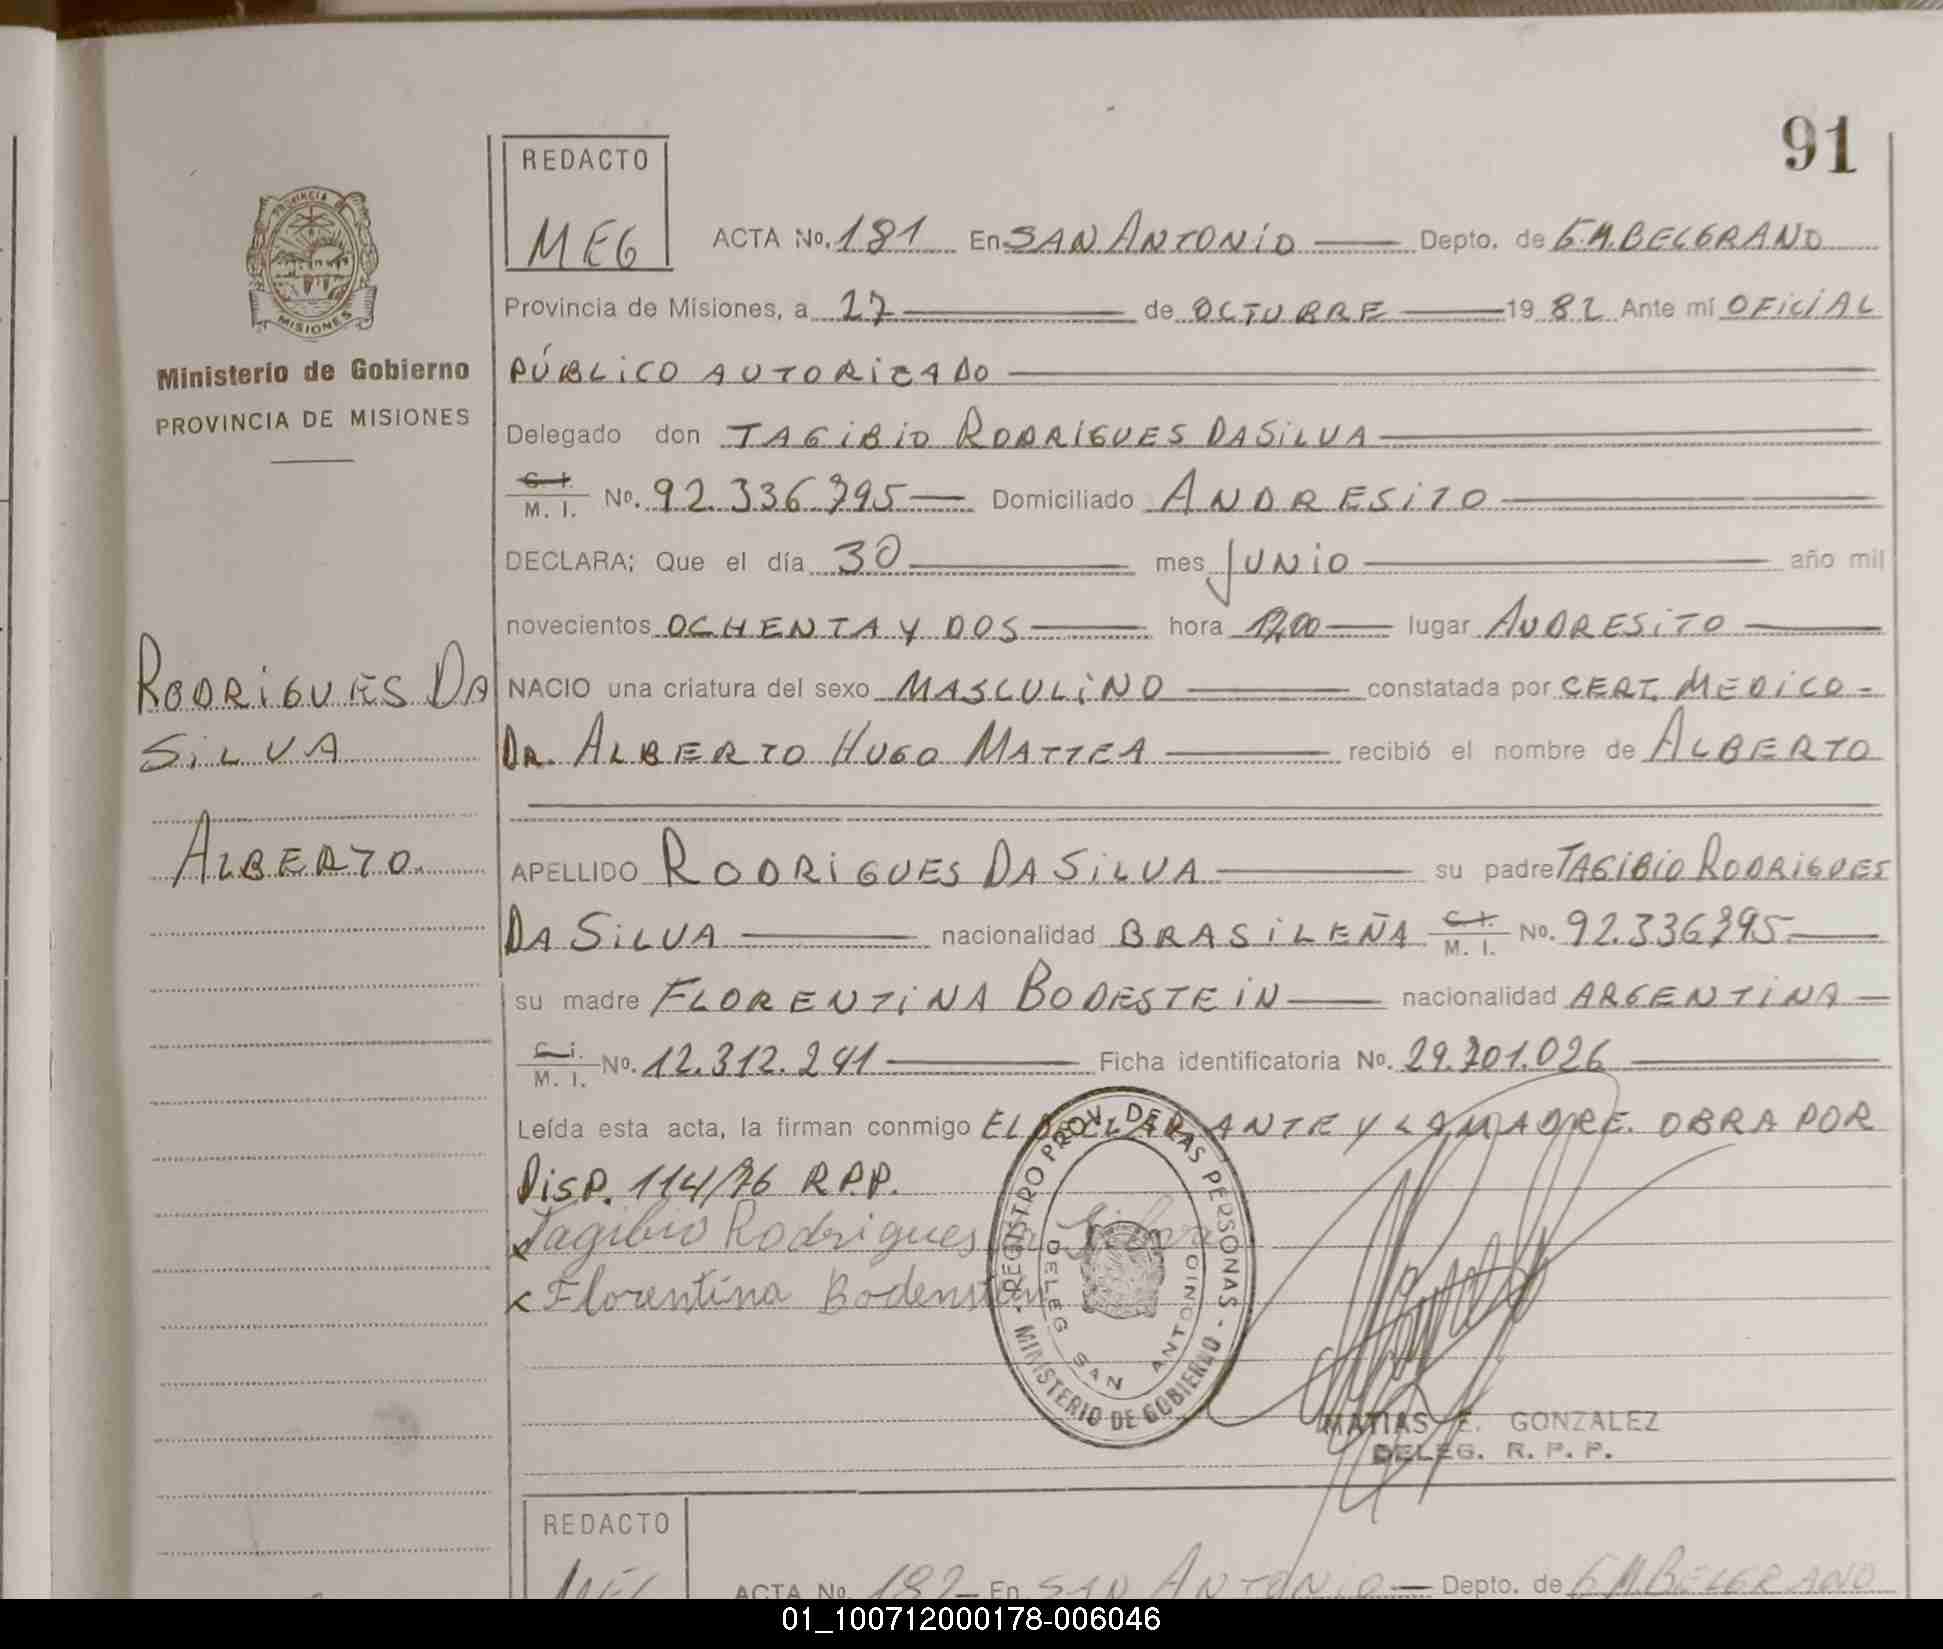 91
REDACTO
MEG
ACTA No. 181 En SAN ANTONIO Depto. de G.M.BELGRANO
Provincia de Misiones, a 27 de OCTUBRE 1982 Ante mí OFICIAL
PÚBLICO AUTORIZADO
Delegado don TAGIBIO RODRIGUES DA SILVA
C. I. M. I. No. 92.336.795 Domiciliado ANDRESITO
DECLARA; Que el día 30 mes JUNIO año mil
novecientos OCHENTA Y DOS hora lugar ANDRESITO
NACIO una criatura del sexo MASCULINO constatada por CERT. MEDICO-
DR. ALBERTO HUGO MATTEA recibió el nombre de ALBERTO
APELLIDO RODRIGUES DA SILVA su padre TAGIBIO RODRIGUES
DA SILVA nacionalidad BRASILEÑA C. I. M. I. No. 92.336.795
su madre FLORENTINA BODESTEIN nacionalidad ARGENTINA
C. I. M. I. No. 12.312.241 Ficha identificatoria No. 29.701.026
Leída esta acta, la firman conmigo EL DECLARANTE Y LA MADRE. OBRA POR
DISP. 114/76 R.P.P.
Tagibio Rodrigues da Silva
x Florentina
REGISTRO PROV. DE LAS PERSONAS
MINISTERIO DE GOBIERNO
DELEG SAN ANTONIO
MATIAS E. GONZALEZ
DELEG. R. P. P.
PROVINCIA DE
MISIONES
Ministerio de Gobierno
PROVINCIA DE MISIONES
RODRIGUES DA
SILVA
ALBERTO.
REDACTO
MEG
ACTA No. 182 En SAN ANTONIO Depto. de G.M.BELGRANO
01_100712000178-006046